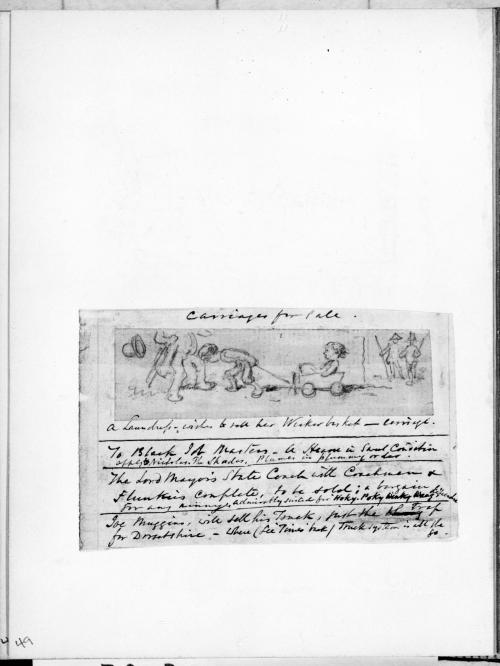 Carriages for Sale.
A Laundress wishes to sell her Wicker basket – carriage.
To Black Job Masters – A Hearse in good Condition
apply Nicholas, The Shades, Plumes in
The Lord Mayor's State Coach with Coachman &
Flunkies Complete, to be sold; a bargain
for any admirably suited for Hoky Poky Winky Wang
Joe Muggins, will sell his Truck, just the Trap
for Dorsetshire – where (See Times) Truck system is all the
go.
49